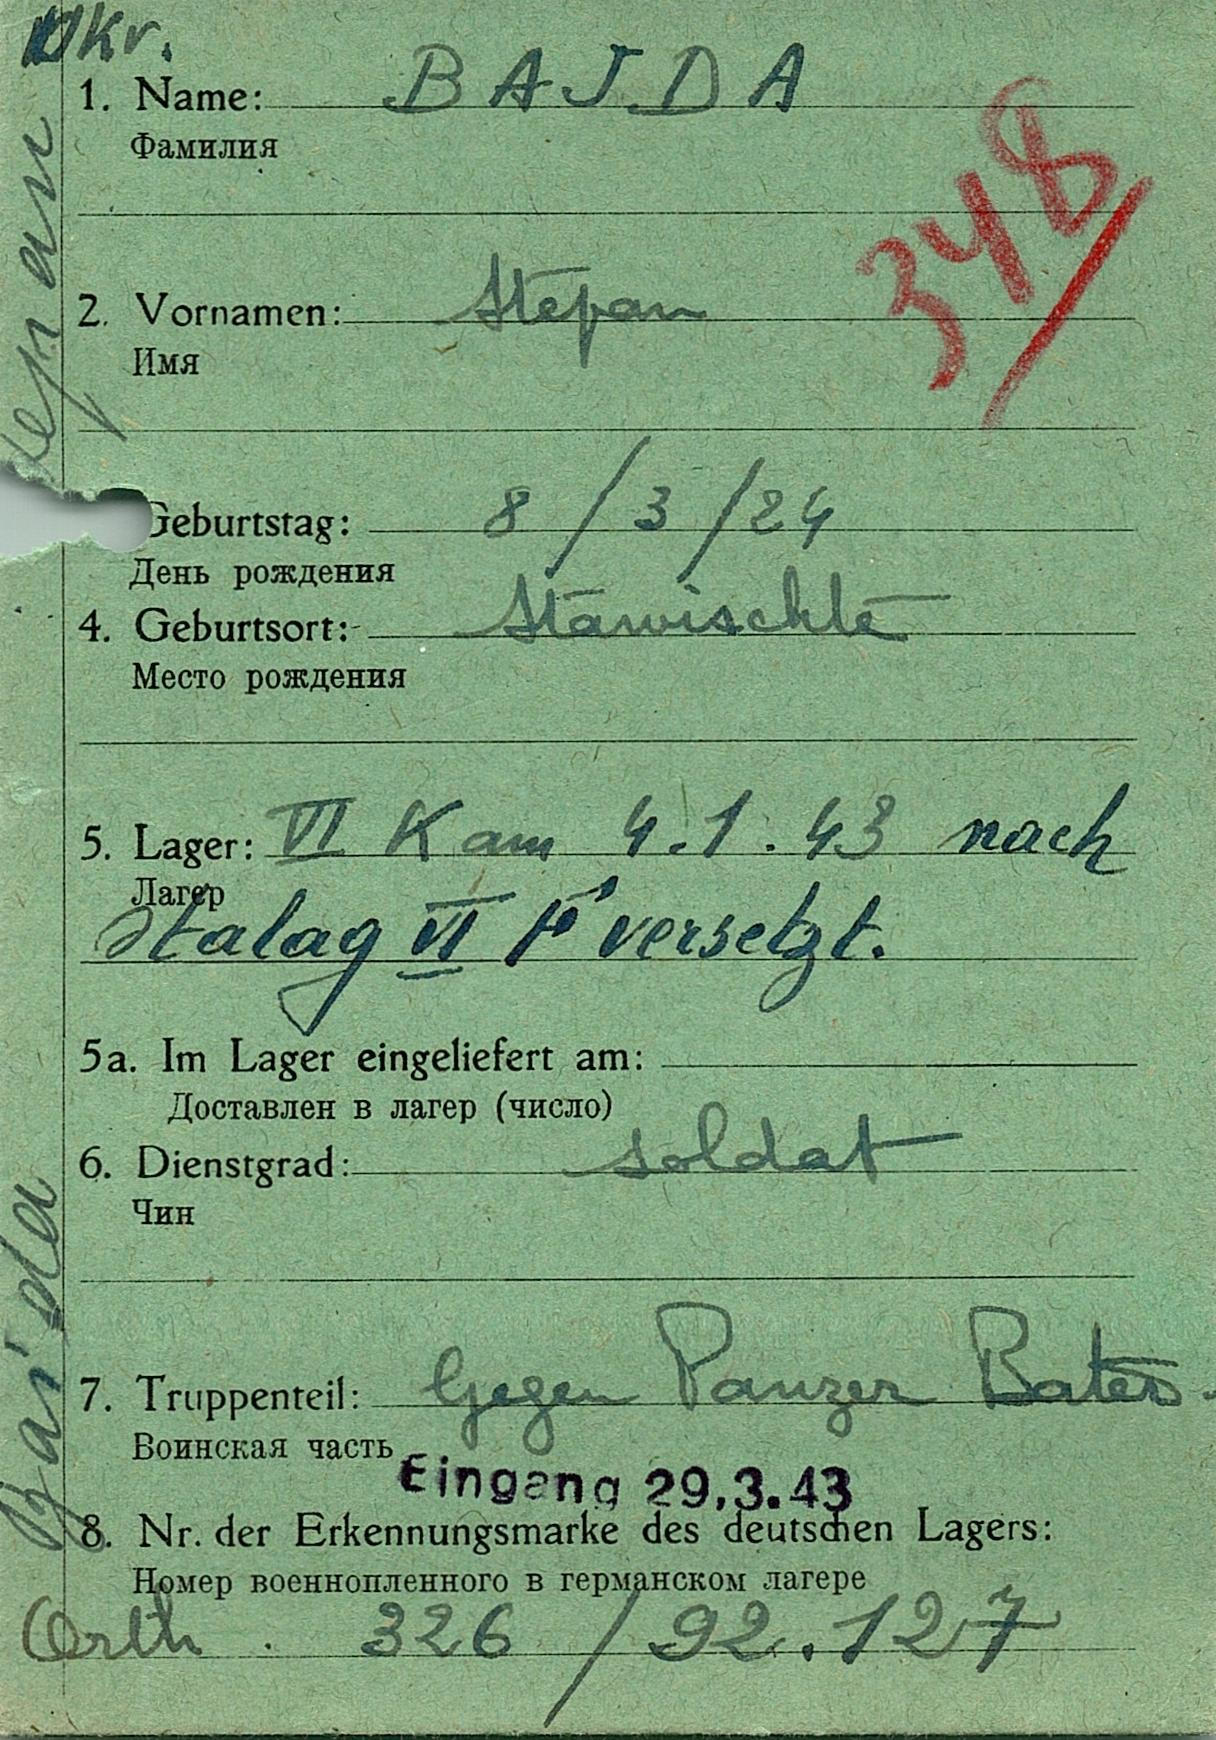 Ukr.
1. Name: BAJDA
Фамилия
348/
2. Vornamen: Stepan
Имя
Geburtstag: 8/3/24
День рождения
4. Geburtsort: Stawischte
Место рождения
5. Lager: VI K am 4.1.43 nach
Лагер
Stalag VI F versetzt.
5a. Im Lager eingeliefert am:
Доставлен в лагер (число)
6. Dienstgrad: soldat
Чин
7. Truppenteil: Gegen Panzer
Воинская часть
Eingang 29.3.43
8. Nr. der Erkennungsmarke des deutschen Lagers:
Номер военнопленного в германском лагере
Orth. 326/92.127
Baida
tepan